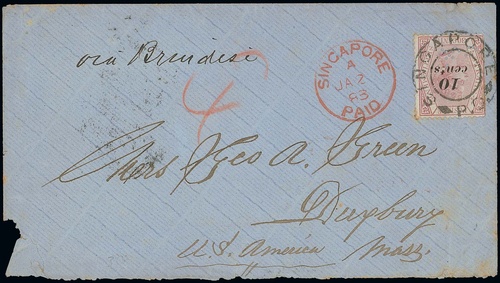 via Brindisi
SINGAPORE
A
JA 2
83
PAID
SINGAPORE
P
10
cents
4
Mrs Geo A. Green
Duxbury
U.S. America Mass.